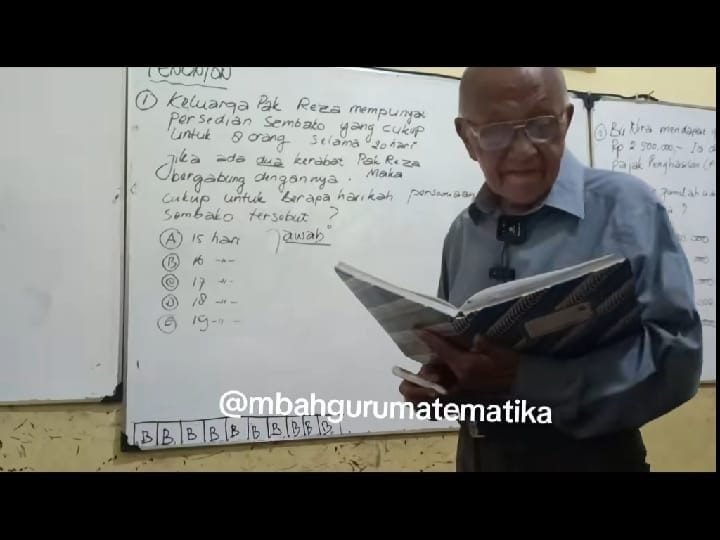 PENONTON
① Keluarga Pak Reza mempunyai
Persedian Sembako yang cukup
Untuk 8 orang selama 20 hari
Jika ada dua kerabat Pak Reza
bergabung dengannya. Maka
cukup untuk berapa harikah persediaan
Sembako tersebut ?
Ⓐ 15 hari Jawab:
Ⓑ 16 -"-
Ⓒ 17 -"-
Ⓓ 18 -"-
Ⓔ 19 -"-
Bu Nira mendapat
Rp 2.500.000,- Ia
pajak Penghasilan
@mbahgurumatematika
B B B B B B B B B B